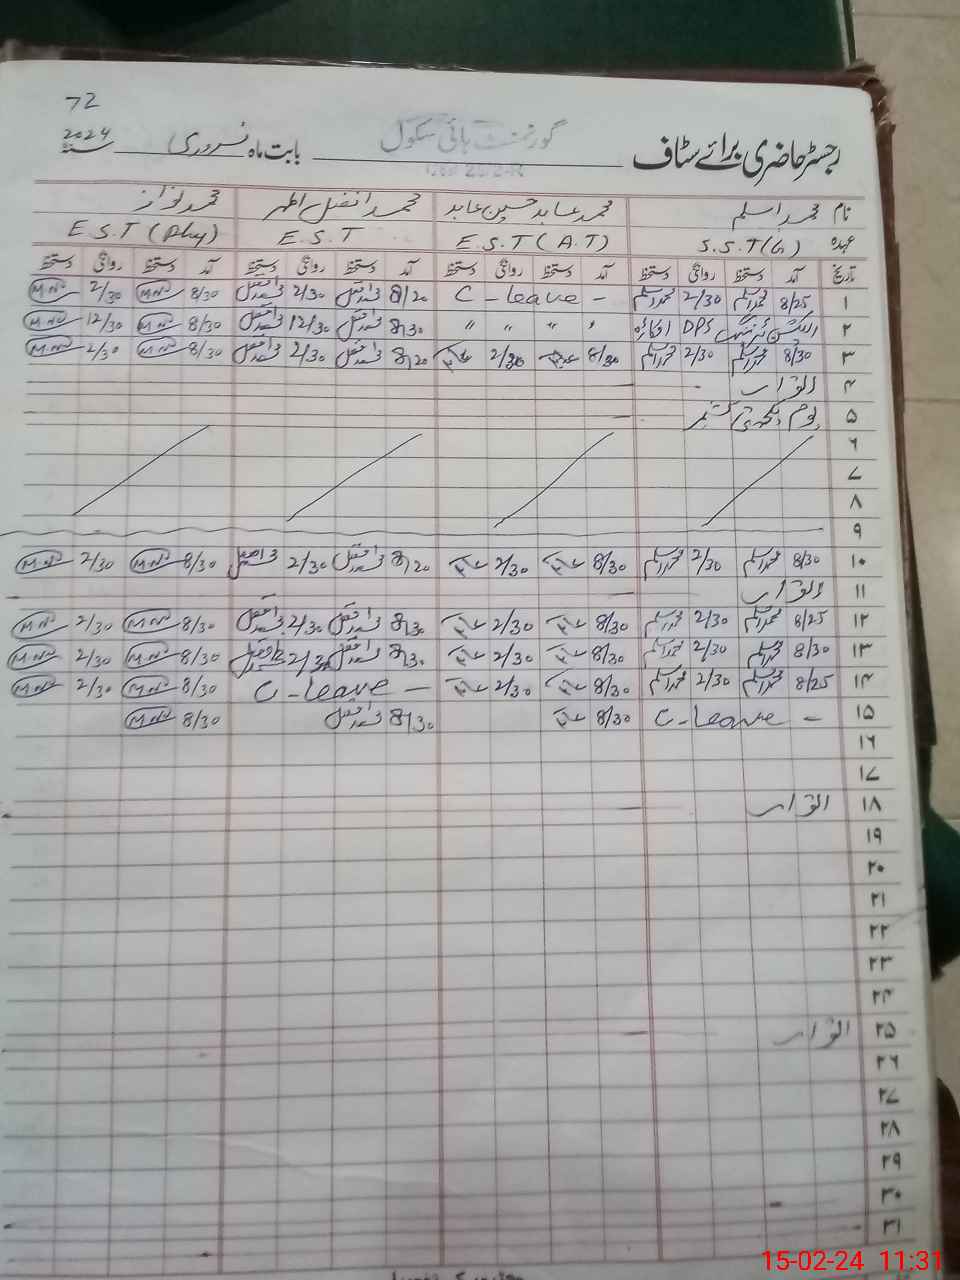 72
گورنمنٹ ہائی سکول
رجسٹر حاضری برائے سٹاف بابت ماہ فروری 2024 سنہ
نام محمد اسلم محمد عابد حسین عابد محمد افضل اطہر محمد نواز
عہدہ S.S.T(G) E.S.T (A.T) E.S.T E.S.T (Phy)
تاریخ آمد دستخط روانگی دستخط آمد دستخط روانگی دستخط آمد دستخط روانگی دستخط آمد دستخط روانگی دستخط
۱ 8/25 محمد اسلم 2/30 محمد اسلم C-leave - 8/20 2/30 8/30 M.N 2/30 M.N
۲ الیکشن ٹریننگ DPS اوکاڑہ " " " " 8/30 12/30 8/30 M.N 12/30 M.N
۳ 8/30 محمد اسلم 2/30 محمد اسلم 8/30 عابد 2/30 عابد 8/20 2/30 8/30 M.N 2/30 M.N
۴ اتوار -
۵ یوم یکجہتی کشمیر
۶
۷
۸
۹
۱۰ 8/30 محمد اسلم 2/30 محمد اسلم 8/30 عابد 2/30 عابد 8/20 2/30 8/30 M.N 2/30 M.N
۱۱ اتوار
۱۲ 8/25 محمد اسلم 2/30 محمد اسلم 8/30 عابد 2/30 عابد 8/30 2/30 8/30 M.N 2/30 M.N
۱۳ 8/30 محمد اسلم 2/30 محمد اسلم 8/30 عابد 2/30 عابد 8/30 2/30 8/30 M.N 2/30 M.N
۱۴ 8/25 محمد اسلم 2/30 محمد اسلم 8/30 عابد 2/30 عابد C-leave - 8/30 M.N 2/30 M.N
۱۵ C-leave - 8/30 عابد 8/30 8/30 M.N
۱۶
۱۷
۱۸ اتوار
۱۹
۲۰
۲۱
۲۲
۲۳
۲۴
۲۵ اتوار
۲۶
۲۷
۲۸
۲۹
۳۰
۳۱
15-02-24 11:31